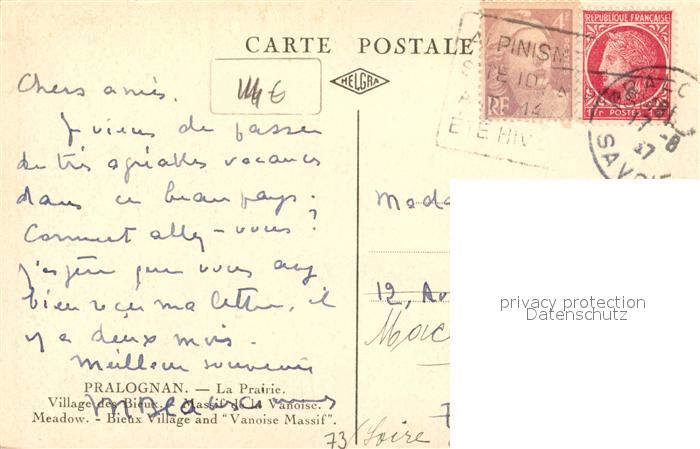 CARTE POSTALE
HELGRA
RÉPUBLIQUE FRANÇAISE
4F
RF
1F POSTES
PINISM
ÉTÉ HIV
SAVOIE
14 €
Chers amis.
Je viens de passer
de très agréables vacances
dans ce beau pays.
Comment allez-vous?
J'espère que vous avez
bien reçu ma lettre, il
y a deux mois.
Meilleur souvenir
Mada
12, Av
Mac
PRALOGNAN. — La Prairie.
Village des Bieux. - Massif de la Vanoise.
Meadow. - Bieux Village and "Vanoise Massif".
73
(Loire
privacy protection
Datenschutz